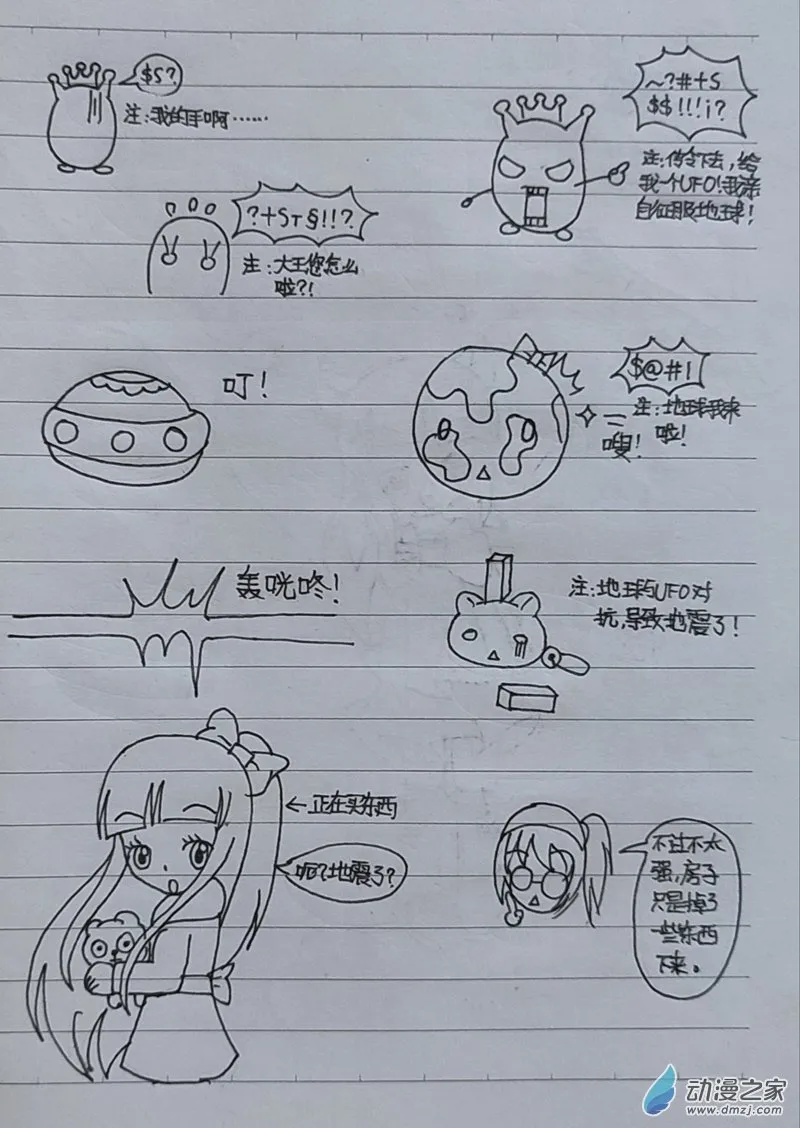 $S?
注:我的手啊……
~?#+S
$$!!!i?
注:传令下去,给
我一个UFO!我亲
自征服地球!
?+ST§!!?
注:大王您怎么
啦?!
叮!
$@#!
注:地球我来
啦!
嗖!
轰咣咚!
注:地球与UFO对
抗,导致地震了!
←正在买东西
呃?地震了?
不过不太
强,房子
只是掉了
一些东西
下来。
动漫之家
www.dmzj.com